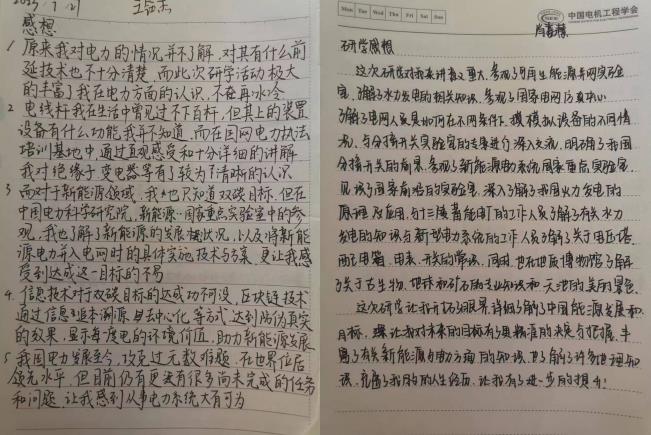 2023 / 7 / 21
感想
1 原来我对电力的情况并不了解，对其有什么前
延技术也不十分清楚，而此次研学活动极大
的丰富了我在电力方面的认识，不在再
2 电线杆我在生活中曾见过不下百杆，但其上的装置
设备有什么功能我并不知道，而在国网电力执法
培训基地中，通过直观感受和十分详细的讲解
我对绝缘子变电器等有了较为清晰的认识
3 而对于新能源领域，我也只知道双碳目标，但在
中国电力科学研究院，新能源国家重点实验室中的参
观，我也了解了新能源的发展概状况，以及将新能
源电力并入电网时的具体实施技术与方案，更让我感
受到达成这一目标的不易
4. 信息技术对于双碳目标的达成功不可没，区块链技术
通过信息溯源与去中心化等方式达到防伪真实
的效果，显示每度电的环境价值，助力新能源发展
5 我国电力发展至今，攻克过无数难题，在世界位居
领先水平，但目前仍有更有很多尚未完成的任务
和问题，让我感到从事电力系统大有可为
Mon Tue Wed Thu Fri Sat Sun
中国电机工程学会
研学感想
这次研学对我来讲意义重大，参观了再生能源并网实验
室，了解了水力发电的相关知识，参观了国家电网仿真中心
了解了电网人员是如何在不同条件下，模拟设备的不同情
况，与分接开关实验室的专家进行深入交流，明确了我国
分接开关的前景，参观了新能源电力系统国家重点实验室，
见识了国家前沿的实验室，深入了解了我国火力发电的
原理及应用，与三峡集团的工作人员了解了有关水力
发电的知识与新型电力系统的工作人员了解了关于用
用电、开关的常识，同时，也在地质博物馆了解
了关于古生物、地球和矿石的专业知识和天地的美丽景色
这次研学让我开拓了眼界，详细了解了中国能源发展和
目标，让我对未来的目标有了更精准的决定与把握，丰
富了有关新能源与电力方面的知识，也了解了许多地理知
识，充实了我的人生经历，让我有了进一步的提升！